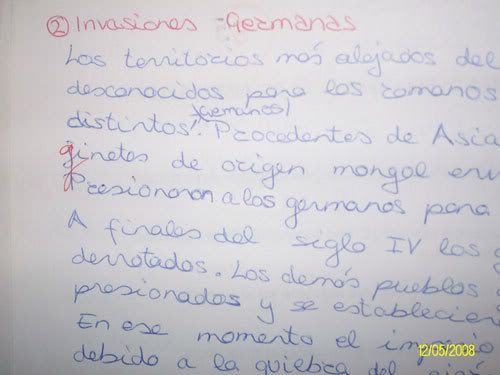 ② Invasiones Germanas
Los territorios más alejados del
desconocidos para los romanos
(Germanos)
distintos. Procedentes de Asia
ginetes de origen mongol
Presionaron a los germanos para
A finales del siglo IV los
derrotados. Los demás pueblos
presionados y se establecier
En ese momento el imperio
debido a la quiebra del
12/05/2008